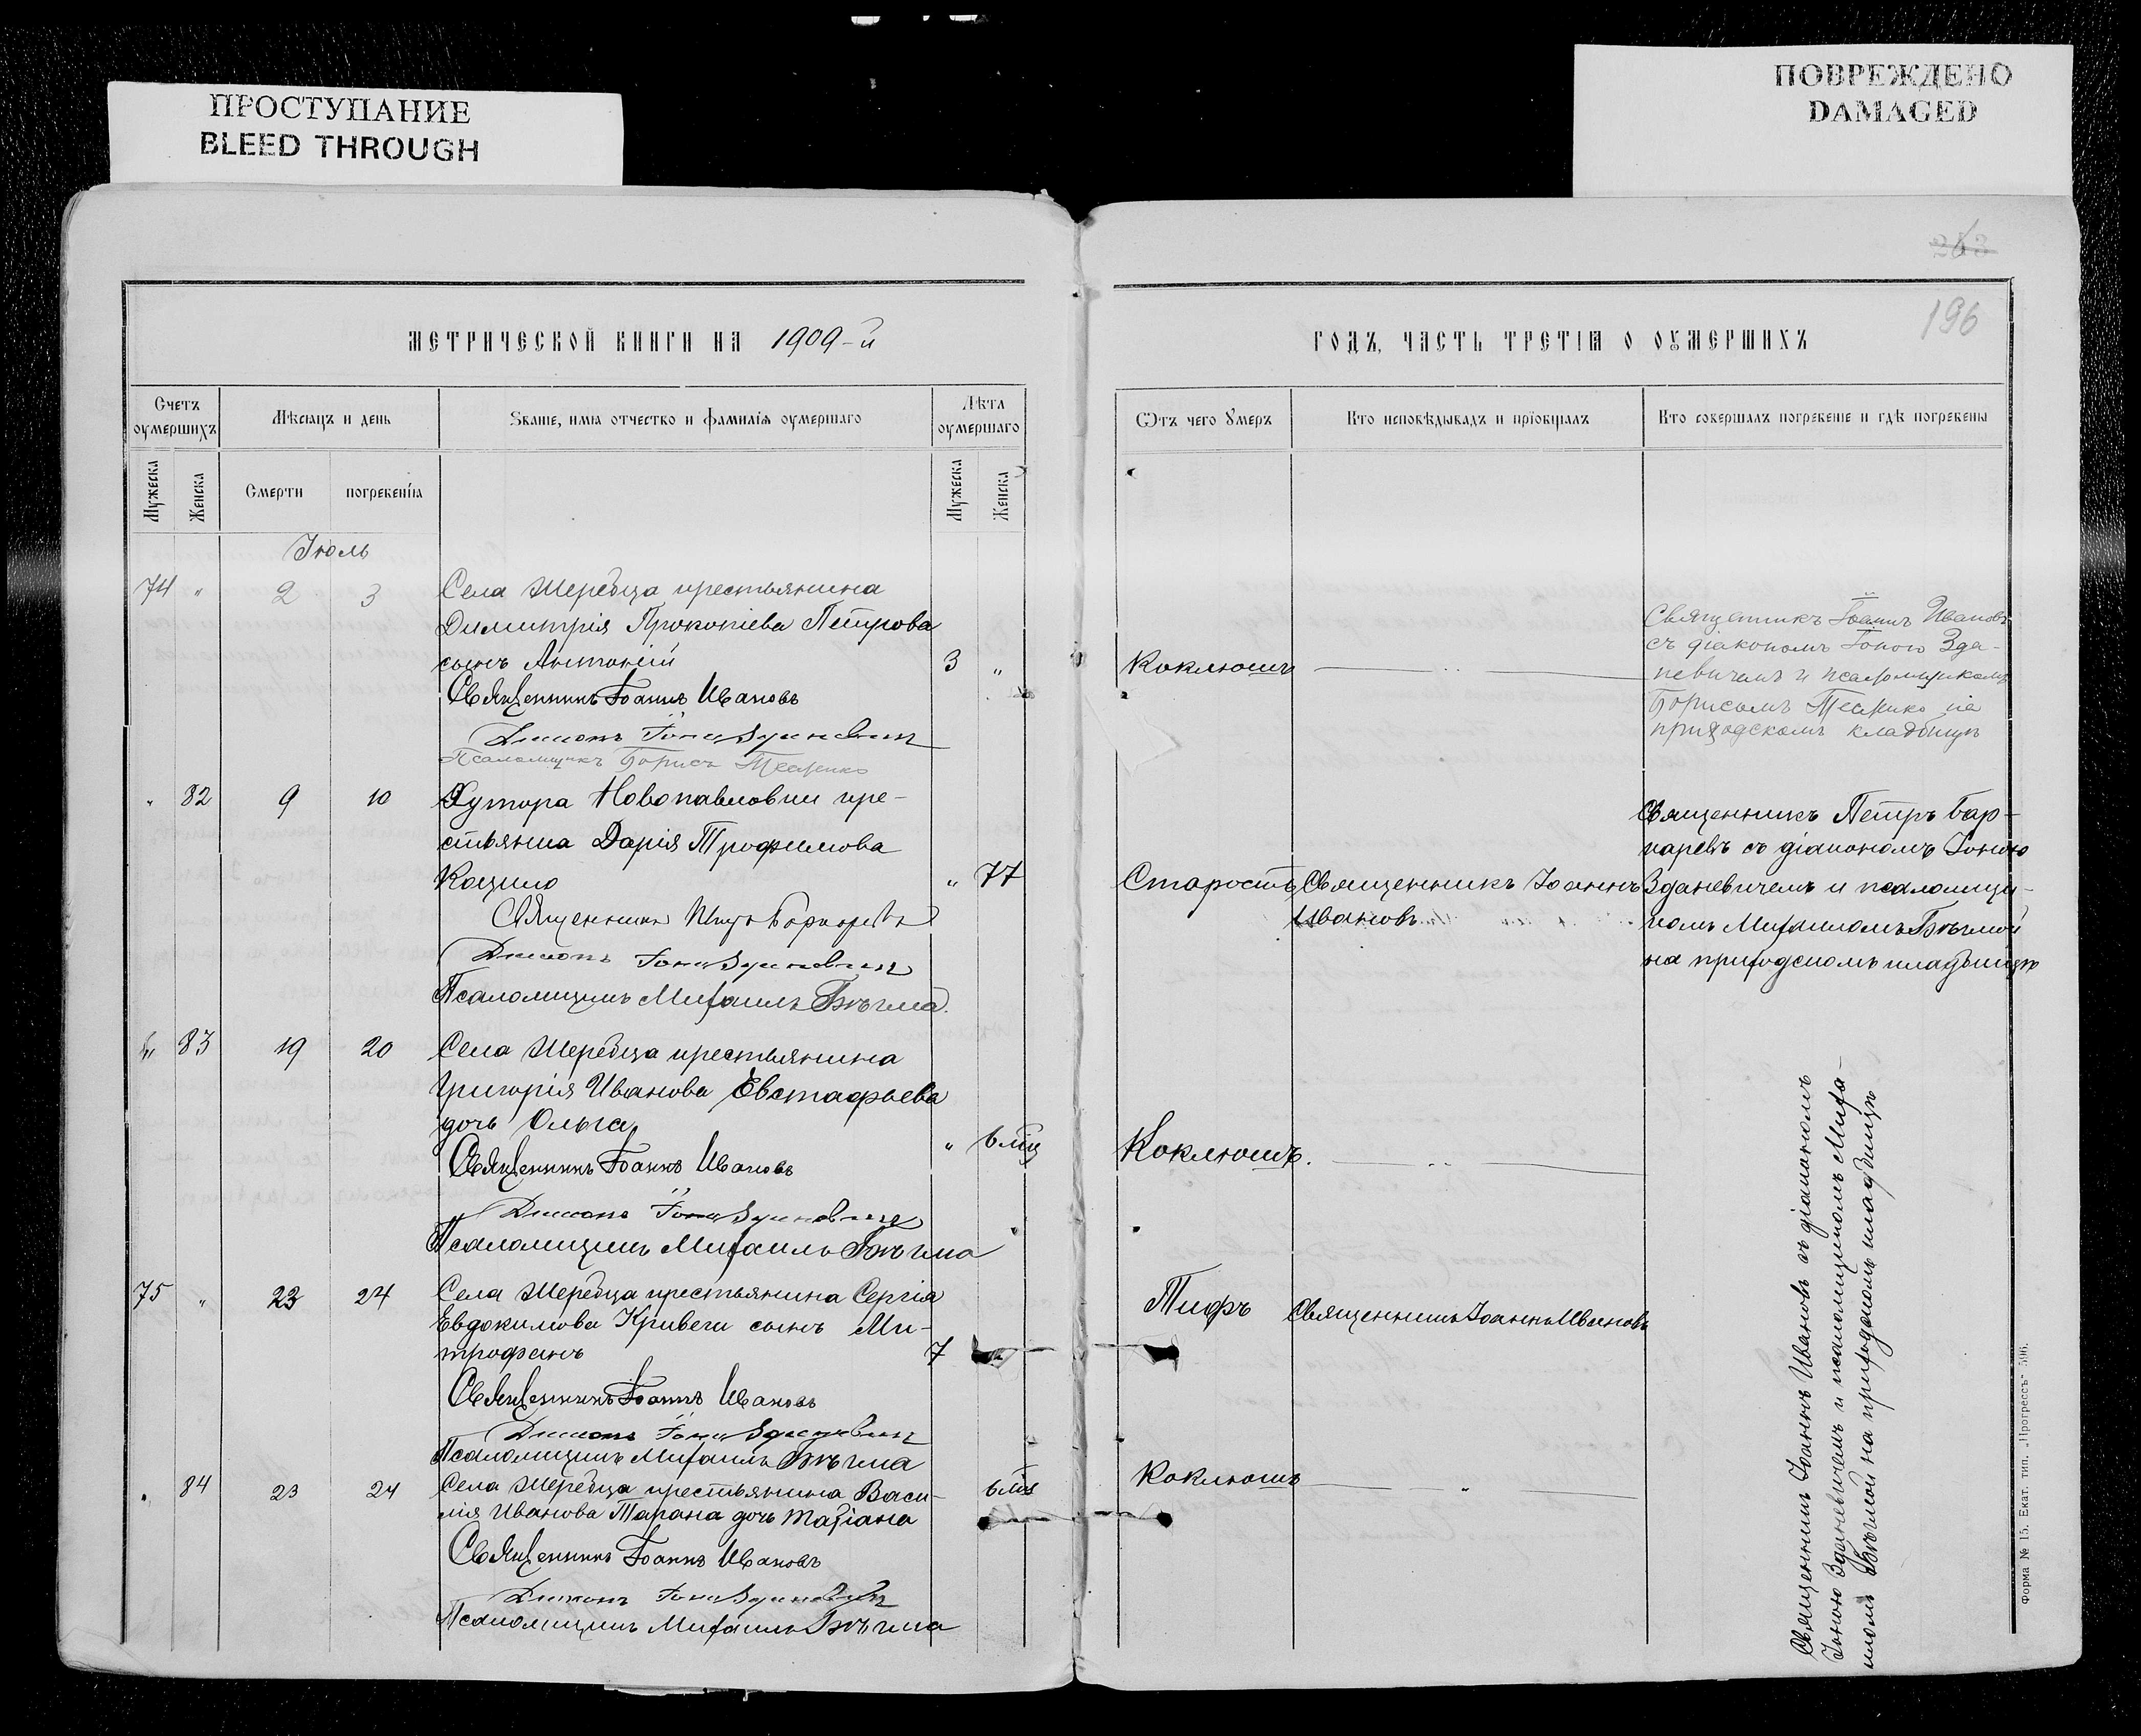 ПРОСТУПАНИЕ
BLEED THROUGH
ПОВРЕЖДЕНО
DAMAGED
196
МЕТРИЧЕСКОЙ КНИГИ НА 1909-й
ГОДЪ, ЧАСТЬ ТРЕТІѦ О ОУМЕРШИХЪ
Счетъ оумершихъ
Мѣсѧцъ и день
Званіе, имѧ отчество и фамиліѧ оумершаго
Лѣта оумершаго
Ѿтъ чего Умеръ
Кто исповѣдывалъ и прїобщалъ
Кто совершалъ погребеніе и гдѣ погребены
Мужеска
Женска
Смерти
погребеніѧ
Мужеска
Женска
Іюль
74 " 2 3 Села Жеребца крестьянина
Димитрія Прокопіева Петрова
сынъ Антоній 3 " Коклюшъ
Священникъ Іоаннъ Ивановъ
Діаконъ Іона Зданевичъ
Псаломщикъ Борисъ
Священникъ Іоаннъ Ивановъ
съ діакономъ Іоною Зда-
невичемъ и псаломщикомъ
Борисомъ на
приходскомъ кладбищѣ
" 82 9 10 Хутора Новопавловки кре-
стьянка Дарія Трофимова
" 77 Старость Священникъ Іоаннъ
Ивановъ
Священникъ Петръ
Діаконъ Іона Зданевичъ
Псаломщикъ Михаилъ Бѣгма.
Священникъ Петръ Бар-
съ діакономъ Іоною
Зданевичемъ и псаломщи-
комъ Михаиломъ Бѣгмой
на приходскомъ кладбищѣ
" 83 19 20 Села Жеребца крестьянина
Григорія Иванова Евстафьева
дочь Ольга " 6 мѣц Коклюшъ.
Священникъ Іоаннъ Ивановъ
Діаконъ Іона Зданевичъ
Псаломщикъ Михаилъ Бѣгма
75 " 23 24 Села Жеребца крестьянина Сергія
Евдокимова Кривеги сынъ Ми-
трофанъ 7 Тифъ Священникъ Іоаннъ Ивановъ
Священникъ Іоаннъ Ивановъ
Діаконъ Іона Зданевичъ
Псаломщикъ Михаилъ Бѣгма
" 84 23 24 Села Жеребца крестьянина Васи-
лія Иванова Тарана дочь Татіана 6 мѣц Коклюшъ
Священникъ Іоаннъ Ивановъ
Діаконъ Іона Зданевичъ
Псаломщикъ Михаилъ Бѣгма
Священникъ Іоаннъ Ивановъ съ діакономъ
Іоною Зданевичемъ и псаломщикомъ Миха-
иломъ Бѣгмой на приходскомъ кладбищѣ
Форма № 15. Екат. тип. „Прогрессъ" 596.